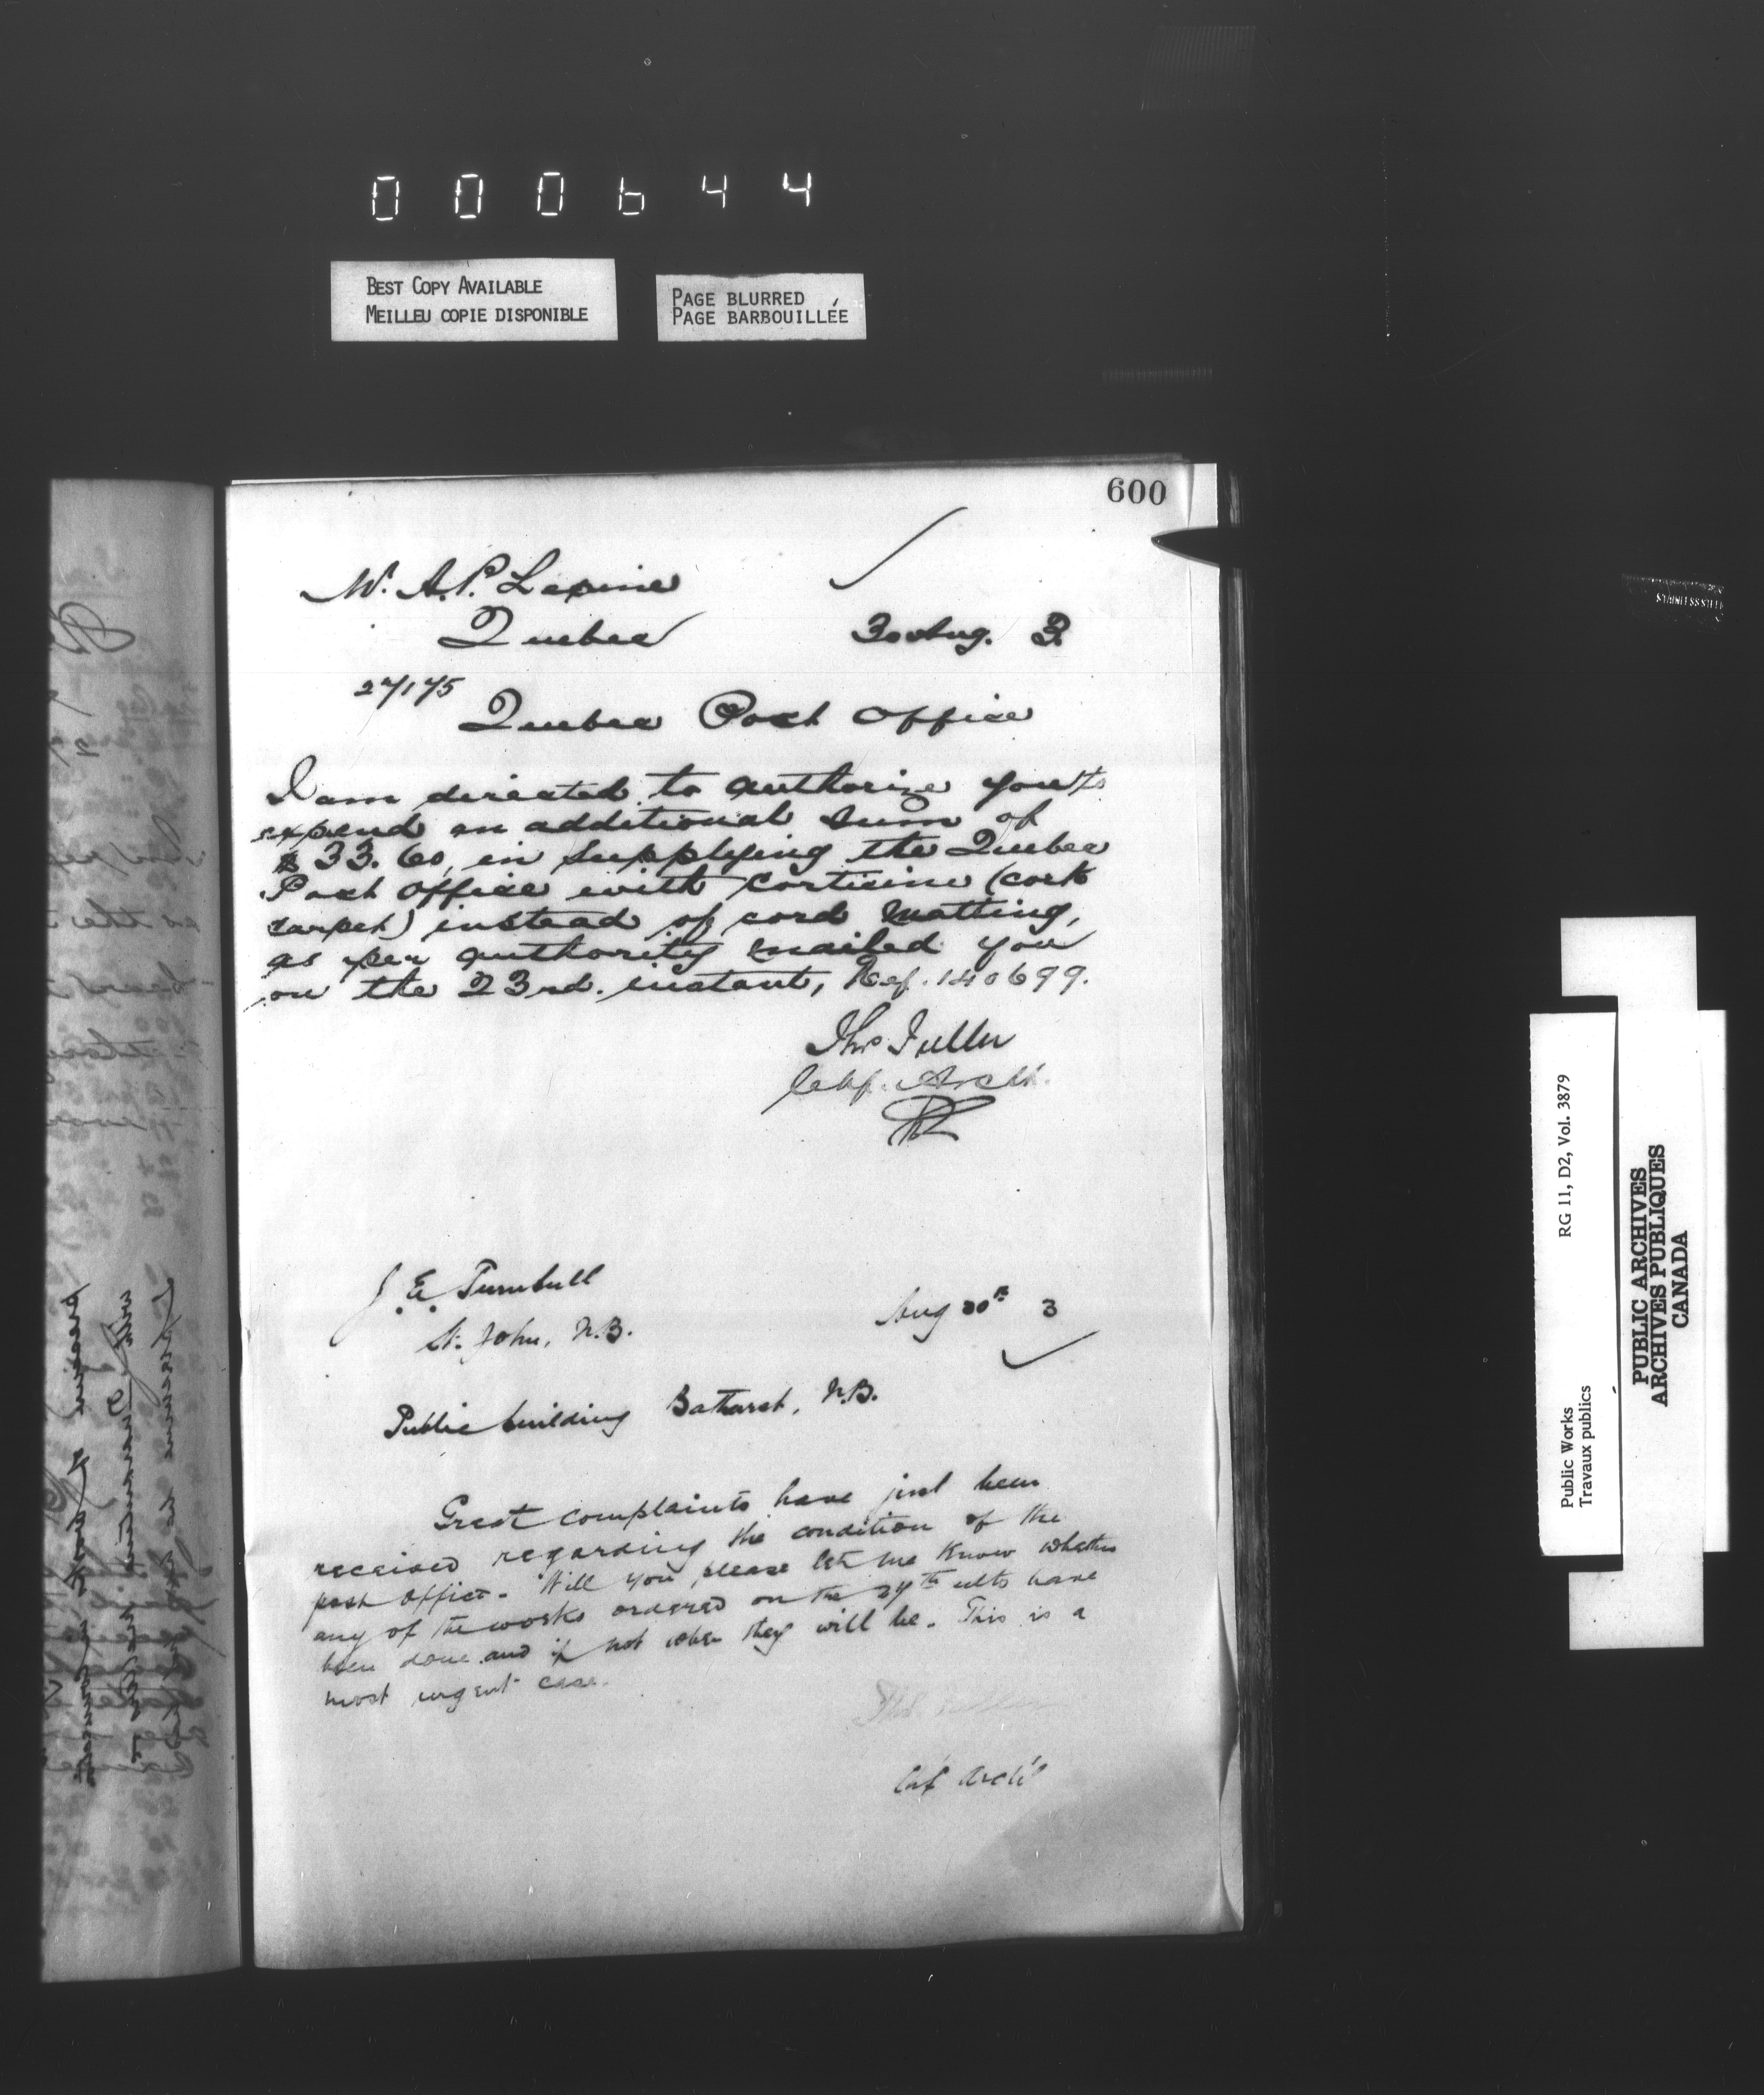 000644
BEST COPY AVAILABLE
MEILLEU COPIE DISPONIBLE
PAGE BLURRED
PAGE BARBOUILLÉE
600
M. A. P. Lepine
Quebec
30 Aug. 3.
27175
Quebec Post Office
I am directed to authorize you to
expend an additional sum of
$33.60, in supplying the Quebec
Post Office with corticine (cork
carpet) instead of cord matting,
as per authority mailed you
on the 23rd. instant, Ref. 140699.
Thos Fuller
Chf. Archt.
J. E. Turnbull
St. John, N.B.
Aug 30th 3
Public building Bathurst, N.B.
Great complaints have just been
received regarding the condition of the
post office. Will you please let me know whether
any of the works ordered on the 27th ulto have
been done and if not when they will be. This is a
most urgent case.
Thos Fuller
Chf Archt
Public Works
Travaux publics
RG 11, D2, Vol. 3879
PUBLIC ARCHIVES
ARCHIVES PUBLIQUES
CANADA